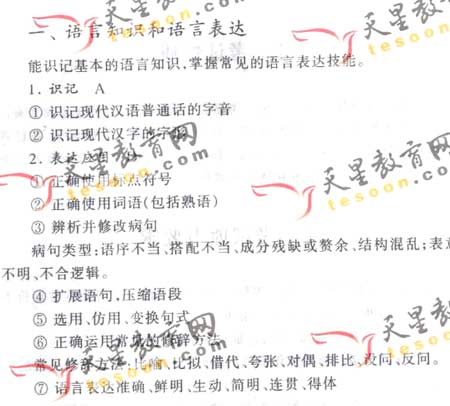 一、语言知识和语言表达
能识记基本的语言知识,掌握常见的语言表达技能。
1. 识记 A
① 识记现代汉语普通话的字音
② 识记现代汉字的字形
2. 表达应用
① 正确使用标点符号
② 正确使用词语(包括熟语)
③ 辨析并修改病句
病句类型:语序不当、搭配不当、成分残缺或赘余、结构混乱;表意
不明、不合逻辑。
④ 扩展语句,压缩语段
⑤ 选用、仿用、变换句式
⑥ 正确运用常见的修辞方法
常见修辞方法:比喻、比拟、借代、夸张、对偶、排比、设问、反问。
⑦ 语言表达准确、鲜明、生动、简明、连贯、得体
天星教育网
tesoon.com
天星教育网
tesoon.com
天星教育网
tesoon.com
天星教育网
tesoon.com